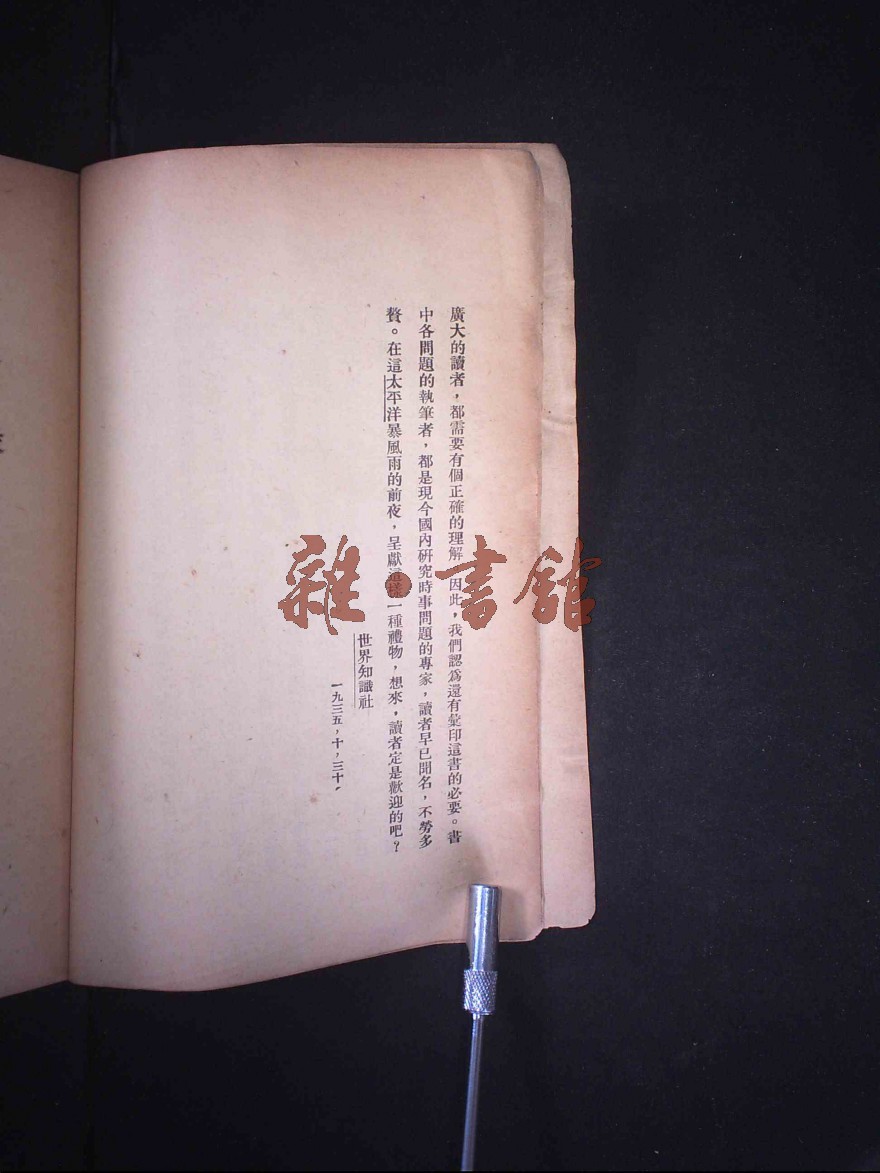 廣大的讀者，都需要有個正確的理解。因此，我們認爲還有彙印這書的必要。書
中各問題的執筆者，都是現今國內研究時事問題的專家，讀者早已聞名，不勞多
贅。在這太平洋暴風雨的前夜，呈獻這樣一種禮物，想來，讀者定是歡迎的吧？
世界知識社
一九三五，十，三十，
雜·書館